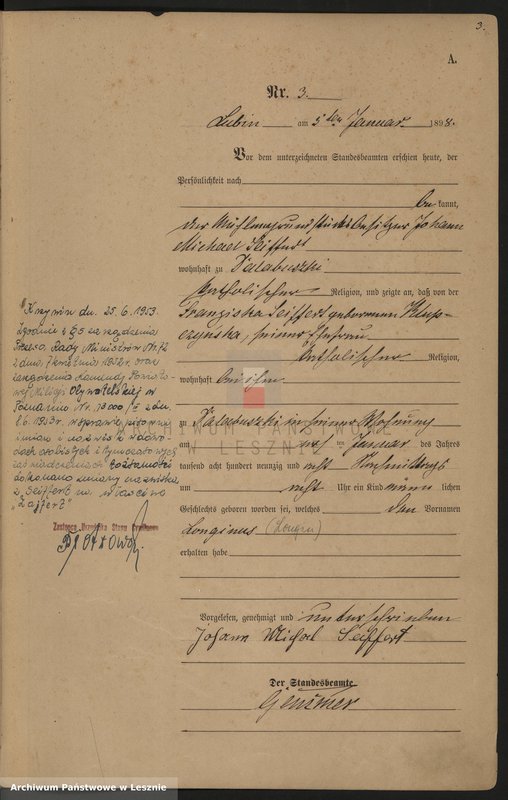 3.
A.
Nr. 3.
Lubin am 5ten Januar 1898.
Vor dem unterzeichneten Standesbeamten erschien heute, der
Persönlichkeit nach
be kannt,
der Mühlengrundstücksbesitzer Johann
Michael Seiffert
wohnhaft zu
katholischer Religion, und zeigte an, daß von der
Franziska Seiffert geborenen
seiner Ehefrau
katholischer Religion,
wohnhaft bei ihm
zu in seiner Wohnung
am ten Januar des Jahres
tausend acht hundert neunzig und acht Nachmittags
um acht Uhr ein Kind männlichen
Geschlechts geboren worden sei, welches den Vornamen
Longinus (Longin)
erhalten habe
Vorgelesen, genehmigt und unterschrieben
Johann Michael Seiffert
Der Standesbeamte
Krzywiń dn. 25.6.1953.
Zgodnie z § 5 zarządzenia
Prezesa Rady Ministrów Nr 72
z dnia 7 kwietnia 1952r. oraz
zarządzenia Komendy
Milicji Obywatelskiej w
Poznaniu Nr. z dn.
1953r. w sprawie pisowni
imion i nazwisk w
dach osobistych i tymczasowych
zaświadczeniach tożsamości
dokonano zmiany nazwiska
z "Seiffert" na właściwe
"Zajfert"
Zastępca Urzędnika Stanu Cywilnego
ARCHIWUM PAŃSTWOWE
W LESZNIE
Archiwum Państwowe w Lesznie